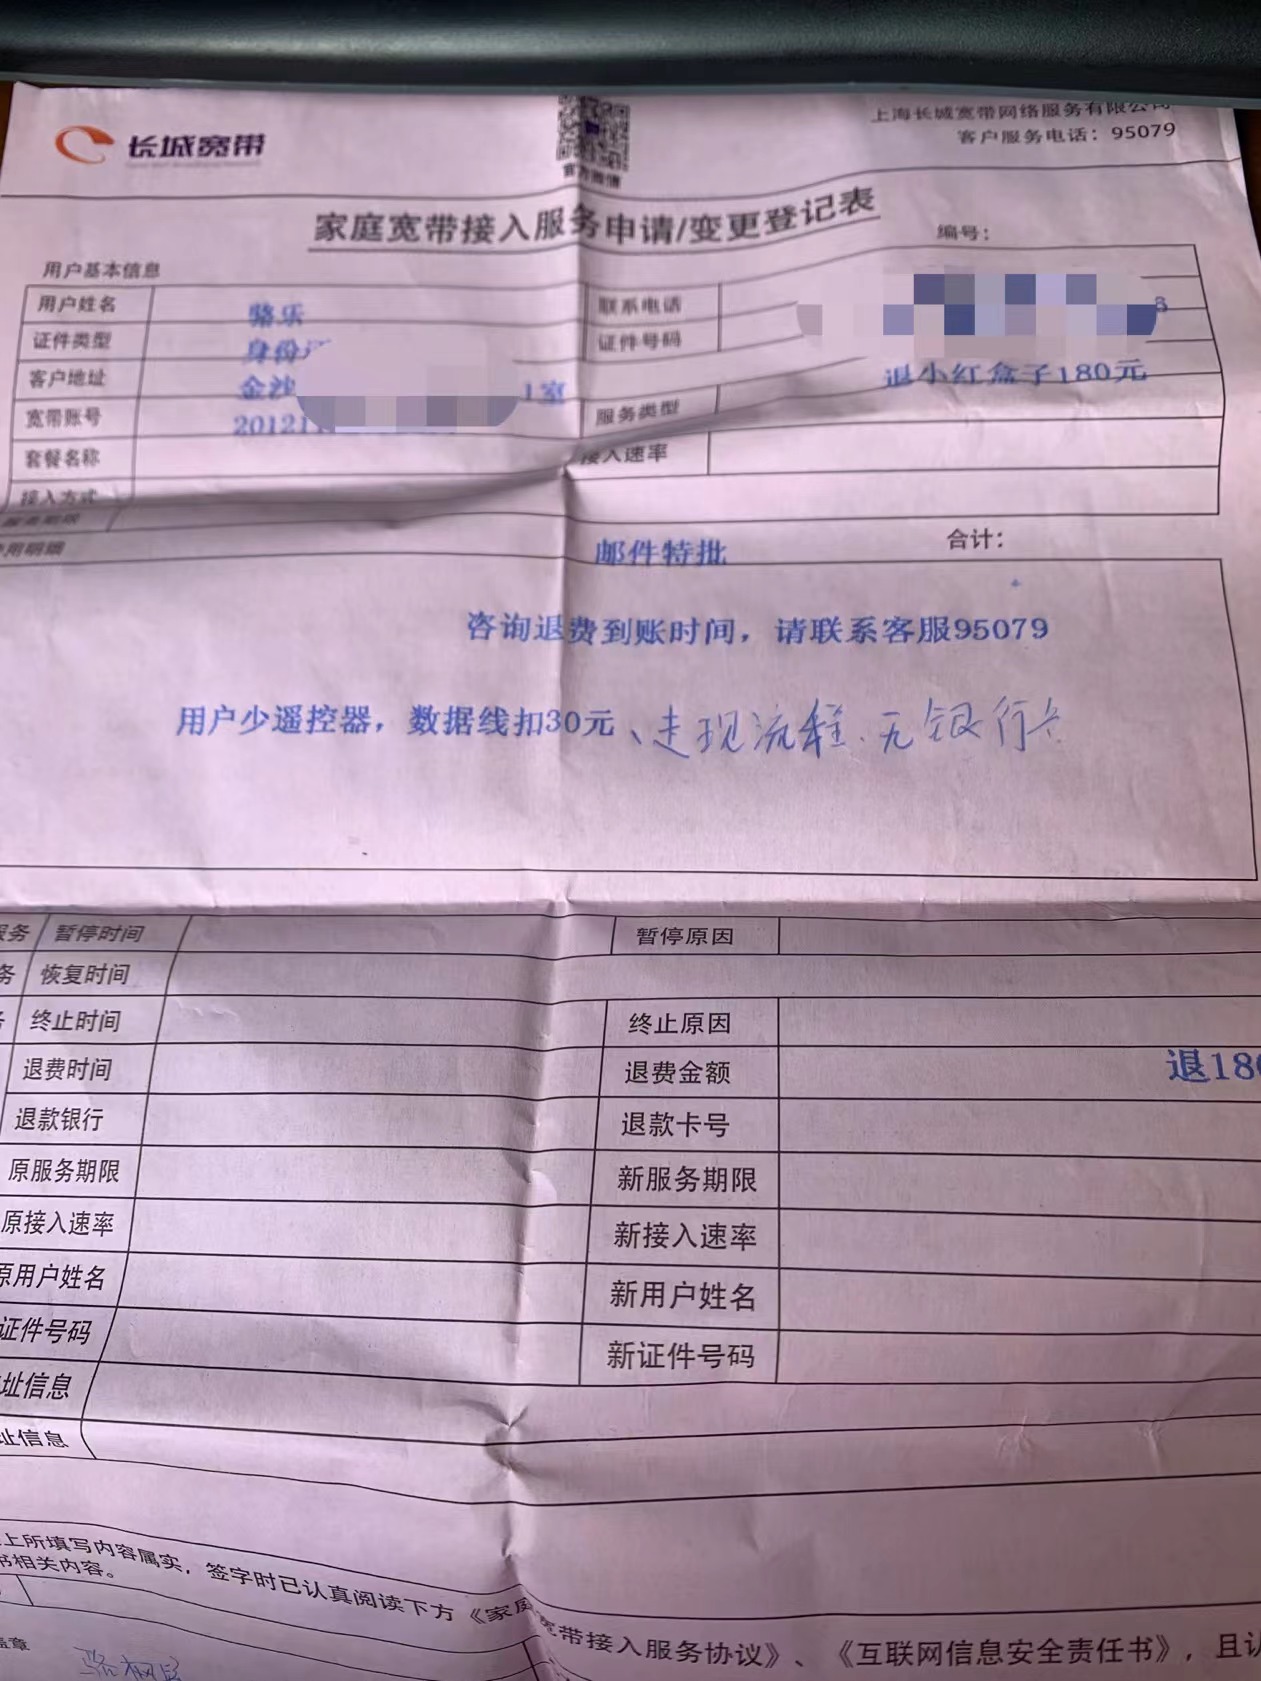 长城宽带
官方微信
上海长城宽带网络服务有限公司
客户服务电话：95079
家庭宽带接入服务申请/变更登记表
编号：
用户基本信息
用户姓名 骆乐 联系电话
证件类型 身份证 证件号码 8
客户地址 金沙 1室 退小红盒子180元
宽带账号 20121 服务类型
套餐名称 接入速率
接入方式
服务期限
费用明细 邮件特批 合计：
咨询退费到账时间，请联系客服95079
用户少遥控器，数据线扣30元、走现流程、无银行卡
服务 暂停时间 暂停原因
务 恢复时间
务 终止时间 终止原因
退费时间 退费金额 退180
退款银行 退款卡号
原服务期限 新服务期限
原接入速率 新接入速率
原用户姓名 新用户姓名
证件号码 新证件号码
址信息
址信息
上所填写内容属实，签字时已认真阅读下方《家庭宽带接入服务协议》、《互联网信息安全责任书》，且认
书相关内容。
盖章